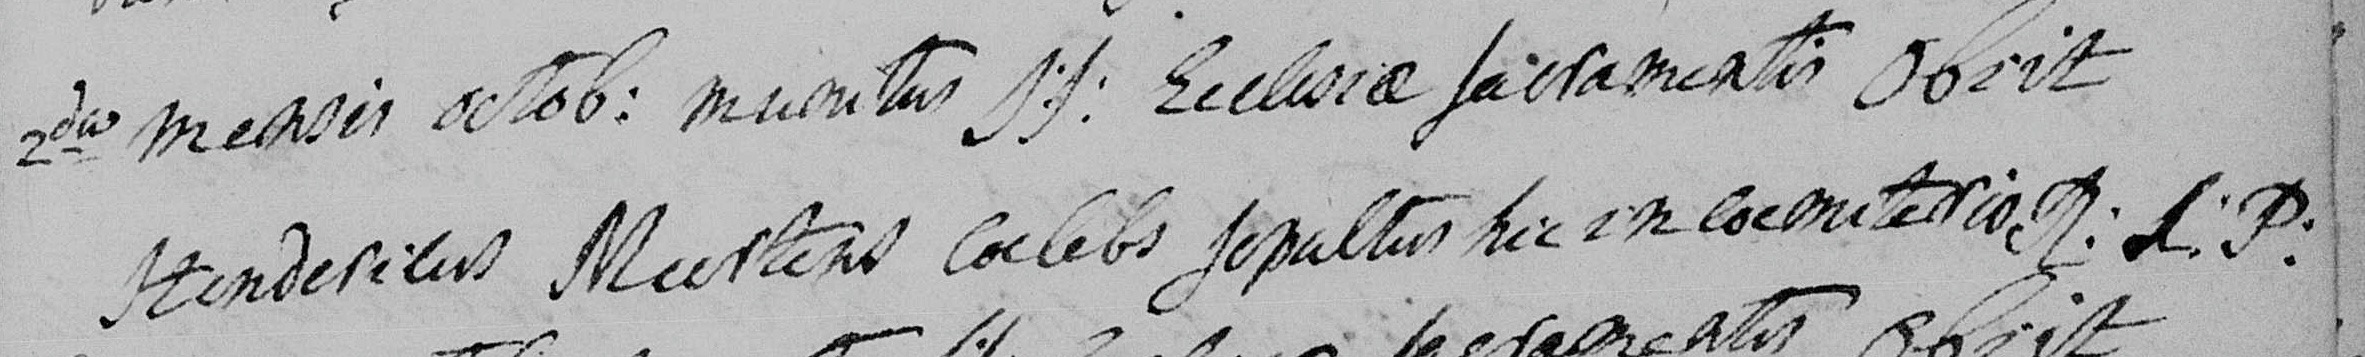 2do mensis octob: munitus SS: Ecclesiæ sacramentis obiit
Hendericus Meertens cœlebs sepultus hic in coemiterio R: I: P:
sacramentis obiit